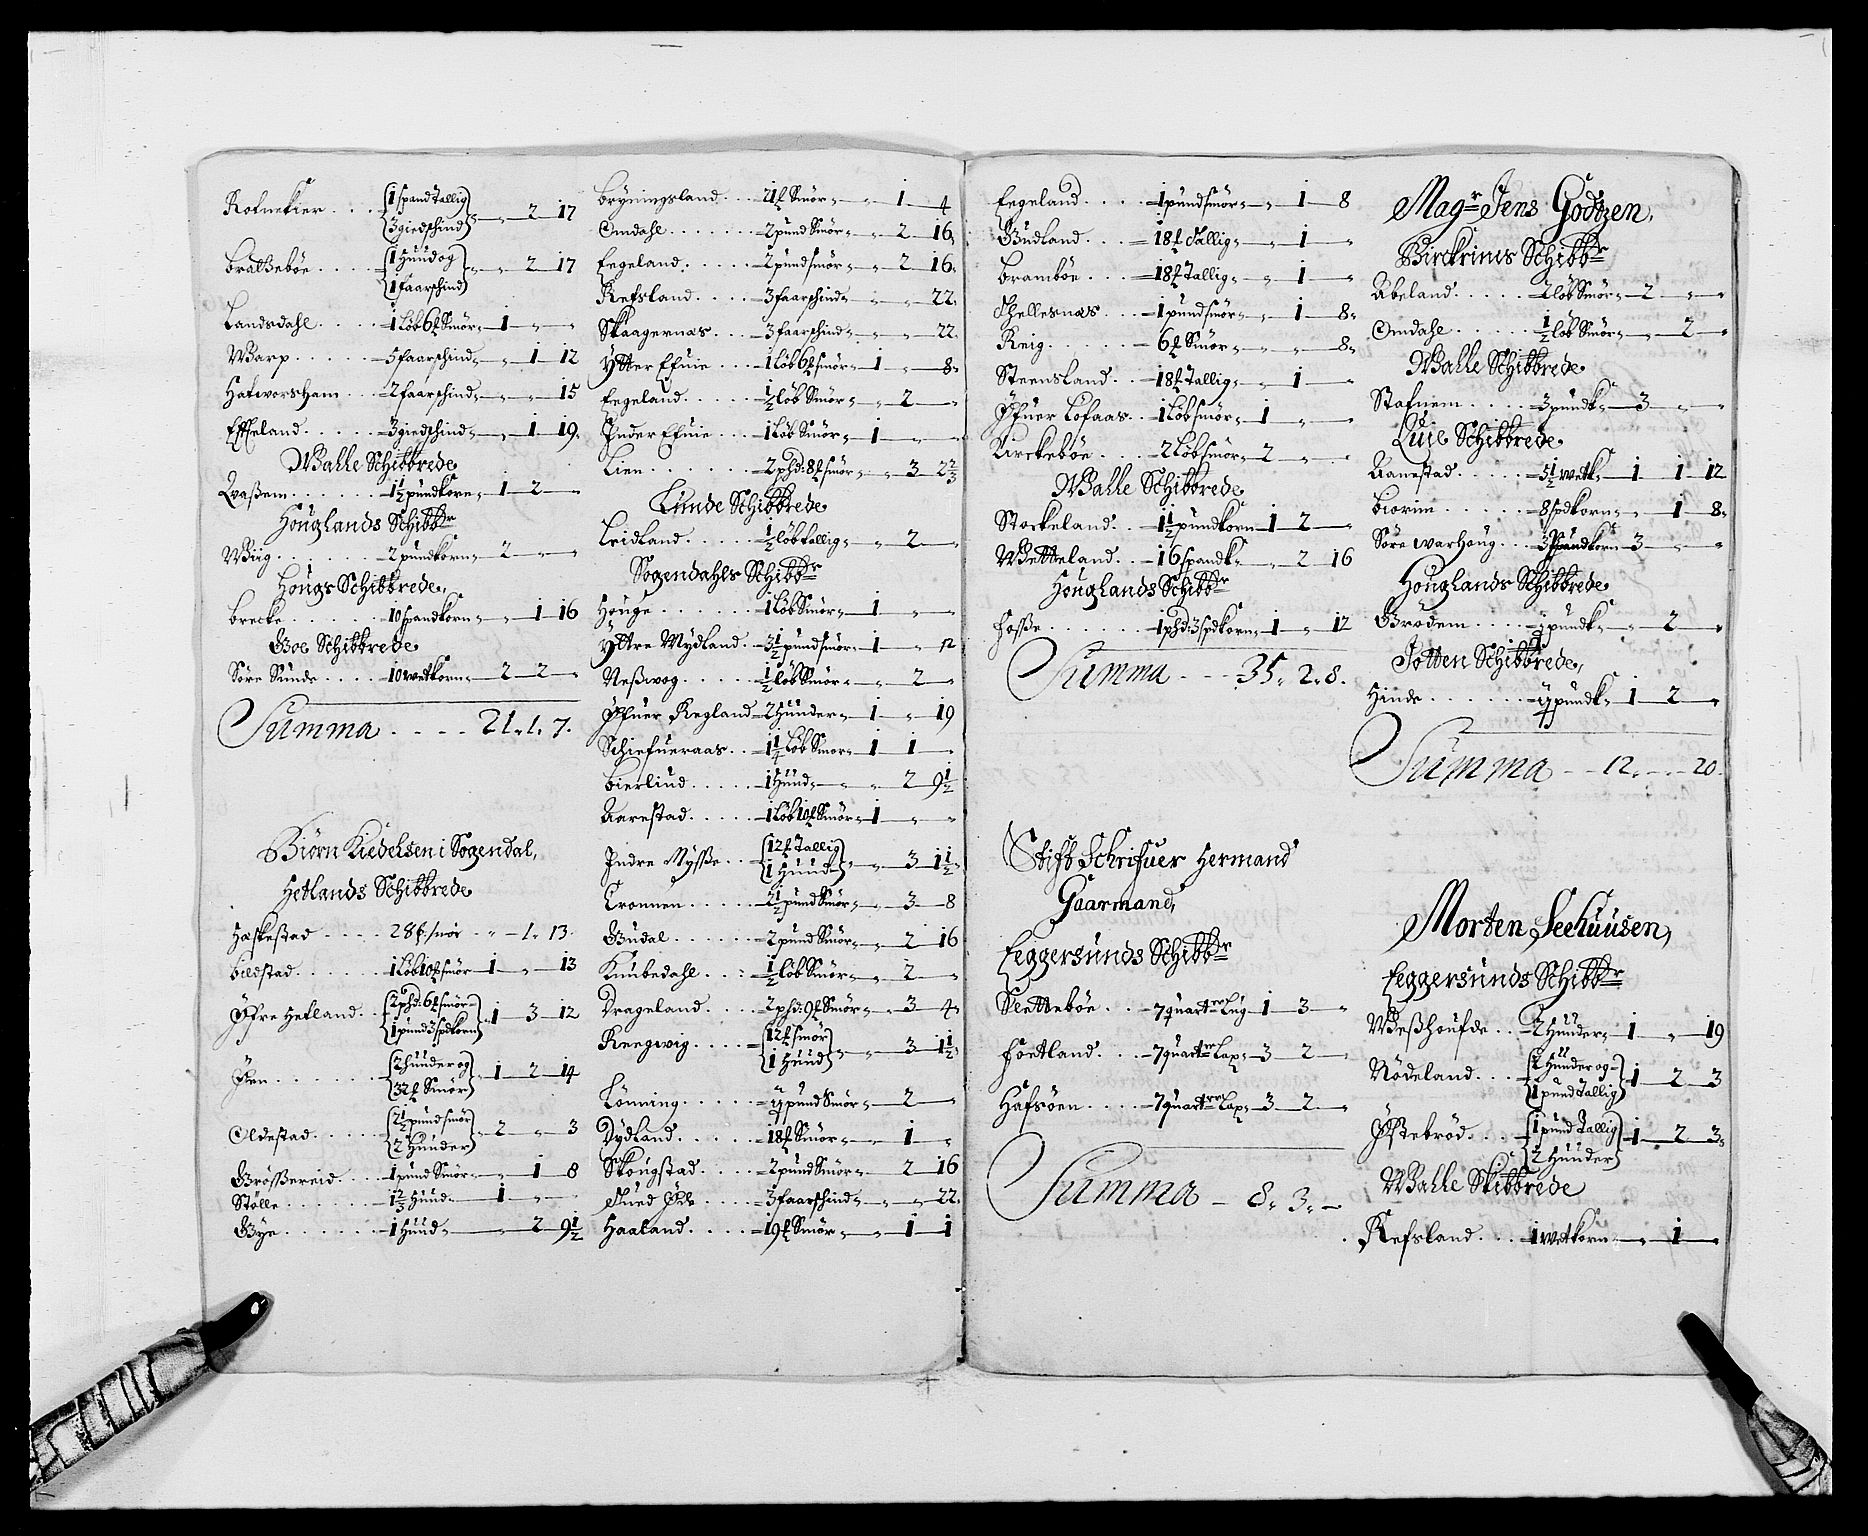 Rofnekier . . . . 1 spand Tallig 3 giedschind „ 2 17
Bratzebøe . . . . 1 Huud og 1 faarschind „ 2 17
Landsdahl . . . . 1 Løb 6 ℔ Smør 1 „ „
Warp . . . . . 5 faarschind „ 1 12
Hafworsham . . 2 faarschind „ „ 15
Effeland . . . . 3 giedschind „ 1 19
Walle Schibbrede
Qvaßem . . . . 1½ pundkorn 1 2 „
Houglands Schibbr
Wiig . . . . . 2 pundkorn 2 „ „
Hougs Schibbrede
Brecke . . . . 10 spandkorn „ 1 16
Goe Schibbrede
Søre Sunde . . . . 10 wetkorn 2 2 „
Summa . . . . 21. 1. 7.
Biørn Kiedelsen i Sogendal,
Hetlands Schibbrede
Heskestad . . . . 28 ℔ smør „ 1. 13.
Eildstad . . . . 1 Løb 10 ℔ smør 1 „ 13
Øfre Hetland . . 2 phd: 6 ℔ smør 1 pund 3 spdkorn 1 3 12
Øen . . . . . 2 Huuder og 32 ℔ Smør 1 2 14
Oldestad . . . . 2½ pund smør 2 Huuder 2 „ 3
Grøßereid . . . . 1 pund Smør „ 1 8
Stølle . . . . 1⅔ Huud 1 „ „
Gye . . . . . 1 Huud „ 2 9½
Bryningsland . . 21 ℔ Smør „ 1 4
Omdahl . . . . 2 pund Smør „ 2 16
Eegeland . . . . 2 pund smør „ 2 16
Refsland . . . . 3 faarschind „ „ 22
Skaagernæs . . 3 faarschind „ „ 22
Ytter Efuie . . 1 Løb 6 ℔ smør 1 „ 8
Eegeland . . . . ½ løb Smør „ 2 „
Inder Efuie . . 1 Løb Smør 1 „ „
Lien . . . . . 2 phd: 8 ℔ smør „ 3 2⅔
Lunde Schibbrede
Leidland . . . . ½ løb tallig „ 2 „
Sogendahls Schibbr
Houge . . . . 1 Løb Smør 1 „ „
Yttre Mydland . 3½ pund smør 1 „ 12
Neßwog . . . . ½ løb Smør „ 2 „
Øfuer Regland 2 Huuder 1 „ 19
Schiefueraas . . 1¼ Løb Smør 1 1 „
Bierliud . . . . 1 Huud „ 2 9½
Aarestad . . . . 1 Løb 10 ℔ Smør 1 „ „
Indre Nysße . . 12 ℔ Tallig 1 Huud „ 3 1½
Tronnen . . . . 2½ pund Smør „ 3 8
Gudal . . . . 2 pund Smør „ 2 16
Knubedahl . . ½ løb Smør „ 2 „
Drageland . . . . 2 phd: 9 ℔ Smør „ 3 4
Reegwig . . . . 12 ℔ smør 1 Huud „ 3 1½
Lønning . . . . pund Smør „ 2 „
Dydland . . . . 18 ℔ Smør „ 1 „
Skougstad . . . . 2 pund Smør „ 2 16
. . 3 faarschind „ „ 22
Haaland . . . . 19 ℔ Smør „ 1 1
Eegeland . . . . 1 pund smør „ 1 8
Gudland . . . . 18 ℔ Tallig „ 1 „
Brambøe . . . . 18 ℔ Tallig „ 1 „
Thellesnæs . . 1 pund smør „ 1 8
Reig . . . . . 6 ℔ Smør „ „ 8
Steensland . . 18 ℔ Tallig „ 1 „
Øfuer Lofaas . . 1 Løb smør 1 „ „
Kirckebøe . . . . 2 Løb smør 2 „ „
Walle Schibbrede
Stockeland . . 1½ pundkorn 1 2 „
Wetteland . . 16 spandk „ 2 16
Houglands Schibbr
Fosße . . . . . 1 phd: 3 spdkorn 1 „ 12
Summa . . . 35. 2. 8.
Stift Schrifuer Hermand
Gaarmand,
Eeggersunds Schibbr
Slettebøe . . . 7 quartr 1 3 „
Foetland . . . 7 quartr Lax 3 2 „
Hafsøen . . . . 7 quartr Lax 3 2 „
Summa 8. 3. „
Magr Jens Godtzen,
Birckrims Schibbr
Abeland . . . . 2 løb Smør 2 „ „
Omdahl . . . . ½ løb Smør „ 2 „
Walle Schibbrede
Stafnem . . . . 3 pundk 3 „ „
Luie Schibbrede
Aanestad . . . . 5½ wetk 1 1 12
Biorm . . . . 8 spdkorn „ 1 8
Søre warhoug . . 3 pundkorn 3 „ „
Houglands Schibbrede
Grødem . . . . pundk „ 2 „
Jotten Schibbrede
Hinde . . . . . pundk 1 2 „
Summa . . 12. „ 20.
Morten Seehuusen,
Eeggersunds Schibbr
Weßhoufde . . 2 Huuder 1 „ 19
Rødeland . . . 2 Huuder og 1 pund Tallig 1 2 3
Østebrød . . . 1 pund Tallig 2 Huuder 1 2 3
Walle Skibbrede
Refsland . . . 1 wetkorn „ 1 „